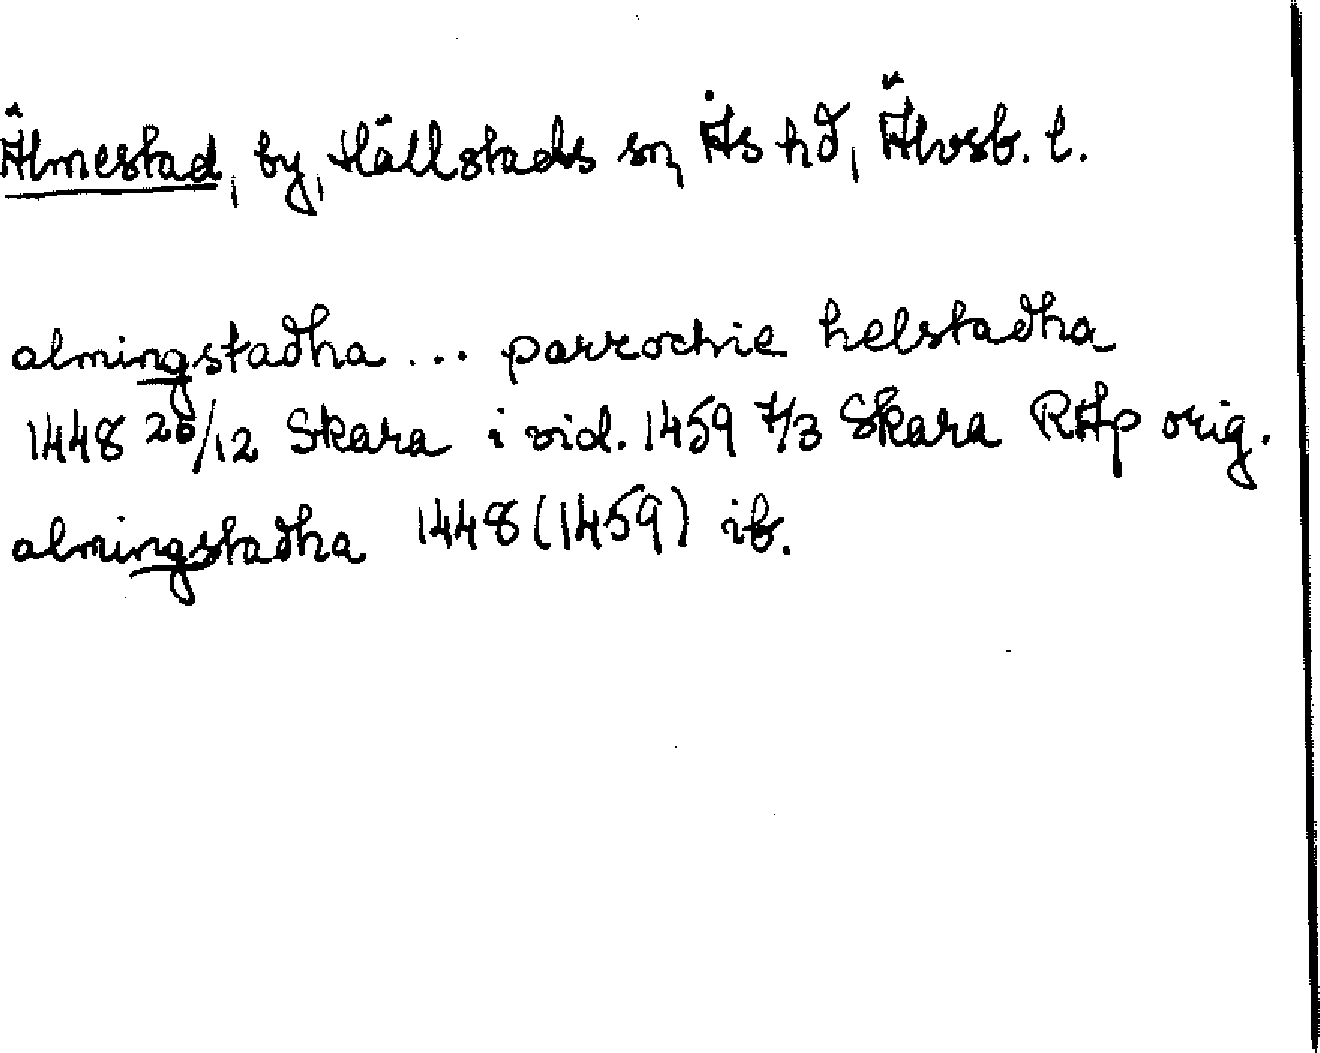 Älmestad, by, Hällstads sn, Ås hd, Älvsb. l.
almingstadha ... parrochie helstadha
1448 20/12 Skara i vid. 1459 7/3 Skara RAp orig.
almingstadha 1448 (1459) ib.